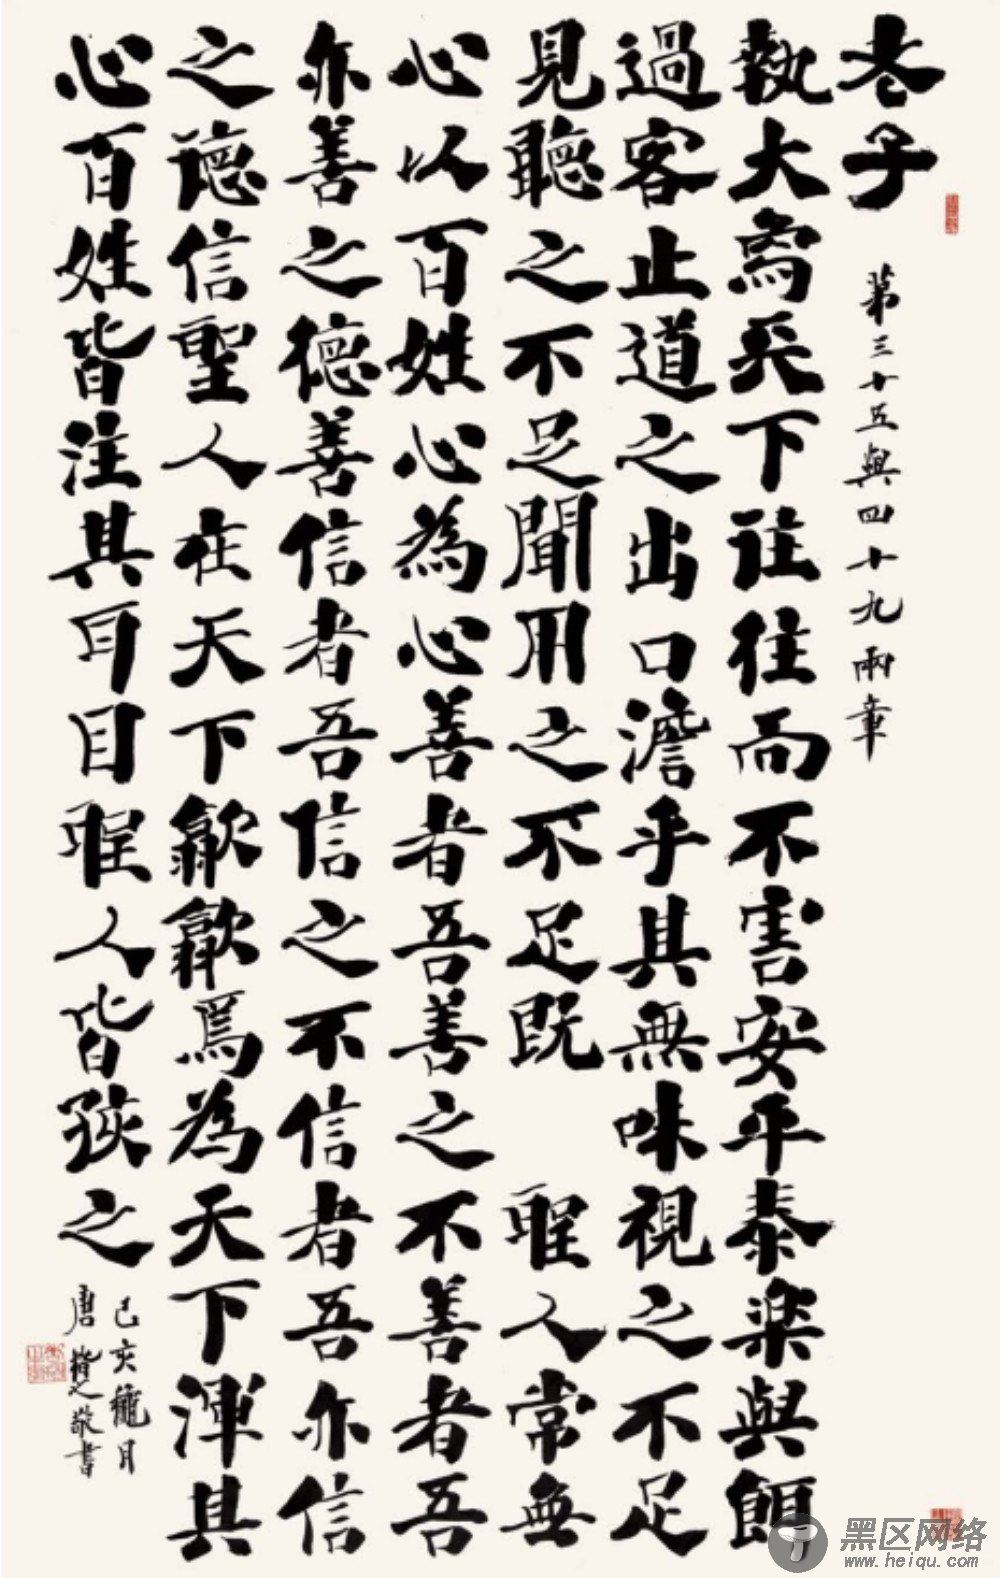 老子 第三十五與四十九兩章
執大象天下往往而不害安平泰樂與餌
過客止道之出口澹乎其無味視之不足
見聽之不足聞用之不足既 聖人常無
心以百姓心為心善者吾善之不善者吾
亦善之德善信者吾信之不信者吾亦信
之德信聖人在天下歙歙焉為天下渾其
心百姓皆注其耳目聖人皆孩之
己亥龝月
唐楷之敬書
黑区网络
www.heiqu.com